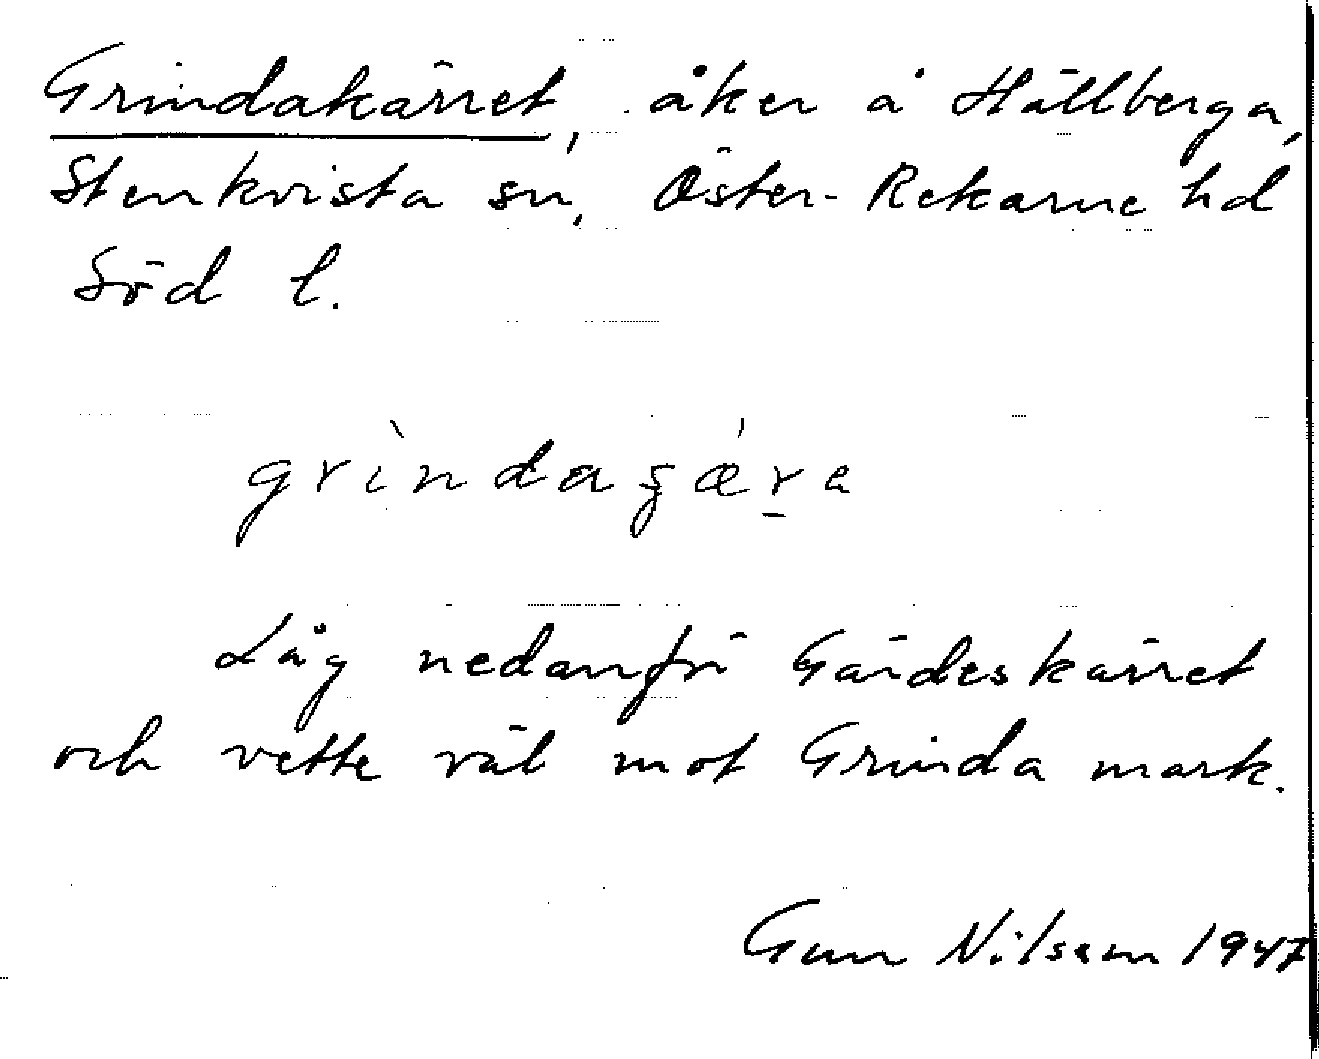 Grindakärret, åker å Hällberga,
Stenkvista sn, Öster-Rekarne hd
Söd l.
grìndaʂǽra
Låg nedanför Gärdeskärret
och vette väl mot Grinda mark.
Gun Nilsson 1947